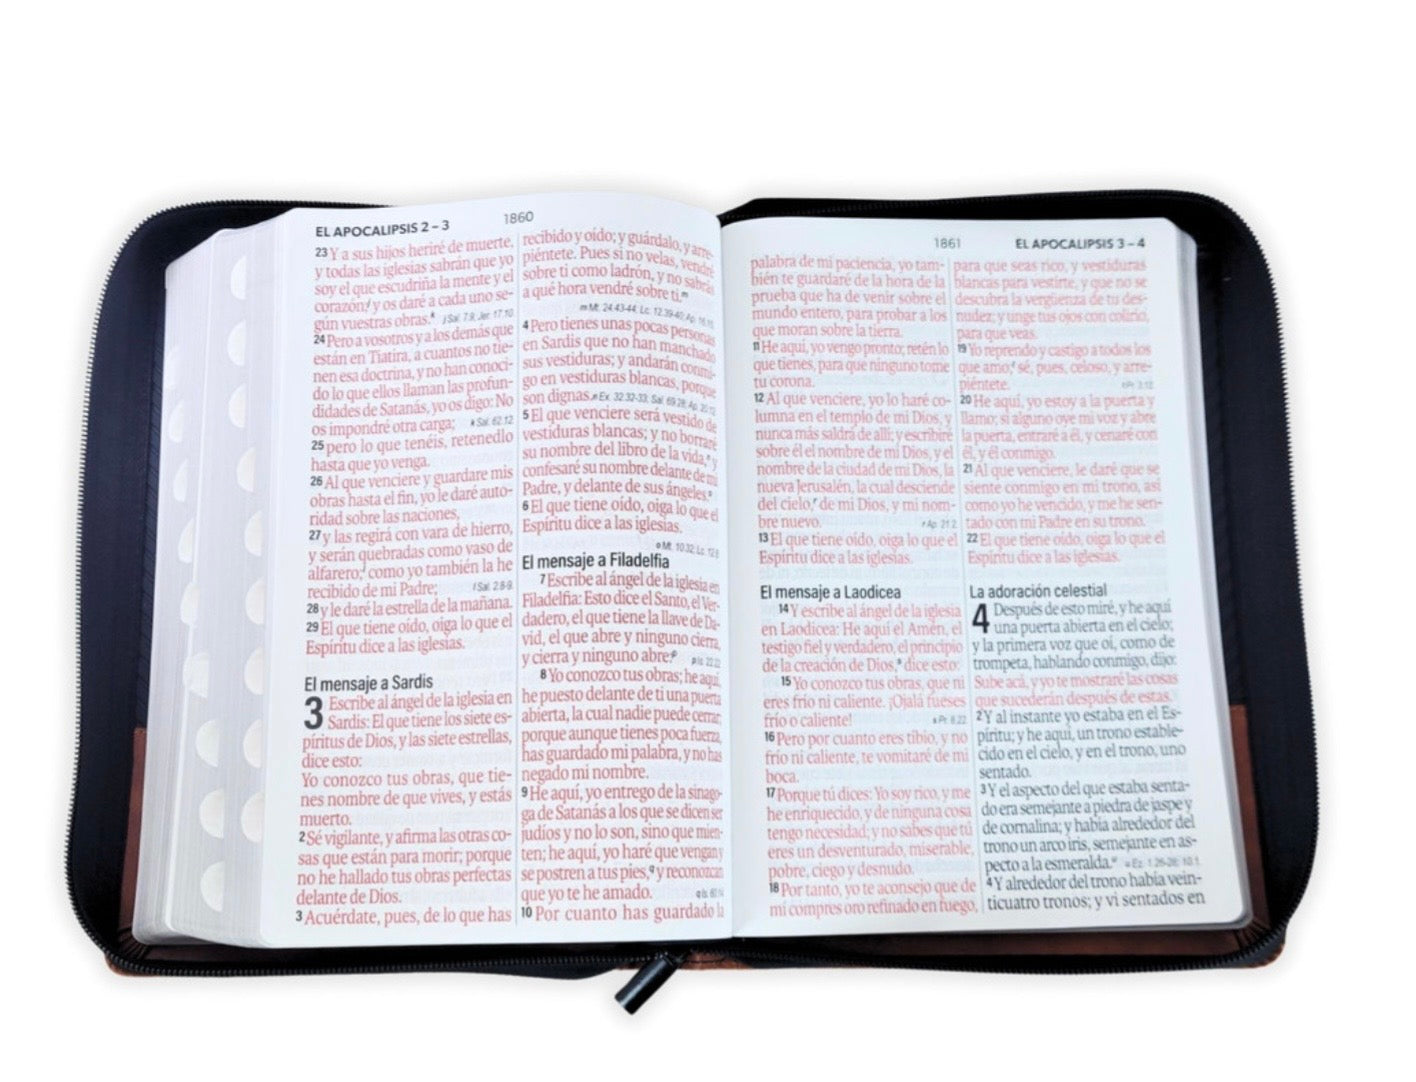 EL APOCALIPSIS 2 – 3
1860
23 Y a sus hijos heriré de muerte,
y todas las iglesias sabrán que yo
soy el que escudriña la mente y el
corazón;j y os daré a cada uno se-
gún vuestras obras.k j Sal. 7.9; Jer. 17.10.
24 Pero a vosotros y a los demás que
están en Tiatira, a cuantos no tie-
nen esa doctrina, y no han conoci-
do lo que ellos llaman las profun-
didades de Satanás, yo os digo: No
os impondré otra carga; k Sal. 62.12.
25 pero lo que tenéis, retenedlo
hasta que yo venga.
26 Al que venciere y guardare mis
obras hasta el fin, yo le daré auto-
ridad sobre las naciones,
27 y las regirá con vara de hierro,
y serán quebradas como vaso de
alfarero;l como yo también la he
recibido de mi Padre; l Sal. 2.8-9.
28 y le daré la estrella de la mañana.
29 El que tiene oído, oiga lo que el
Espíritu dice a las iglesias.
El mensaje a Sardis
3 Escribe al ángel de la iglesia en
Sardis: El que tiene los siete es-
píritus de Dios, y las siete estrellas,
dice esto:
Yo conozco tus obras, que tie-
nes nombre de que vives, y estás
muerto.
2 Sé vigilante, y afirma las otras co-
sas que están para morir; porque
no he hallado tus obras perfectas
delante de Dios.
3 Acuérdate, pues, de lo que has
recibido y oído; y guárdalo, y arre-
piéntete. Pues si no velas, vendré
sobre ti como ladrón, y no sabrás
a qué hora vendré sobre ti.m
m Mt. 24.43-44; Lc. 12.39-40; Ap. 16.15.
4 Pero tienes unas pocas personas
en Sardis que no han manchado
sus vestiduras; y andarán conmi-
go en vestiduras blancas, porque
son dignas. n Ex. 32.32-33; Sal. 69.28; Ap. 20.12.
5 El que venciere será vestido de
vestiduras blancas; y no borraré
su nombre del libro de la vida,n y
confesaré su nombre delante de mi
Padre, y delante de sus ángeles.o
6 El que tiene oído, oiga lo que el
Espíritu dice a las iglesias.
o Mt. 10.32; Lc. 12.8
El mensaje a Filadelfia
7 Escribe al ángel de la iglesia en
Filadelfia: Esto dice el Santo, el Ver-
dadero, el que tiene la llave de Da-
vid, el que abre y ninguno cierra,
y cierra y ninguno abre:p p Is. 22.22
8 Yo conozco tus obras; he aquí,
he puesto delante de ti una puerta
abierta, la cual nadie puede cerrar;
porque aunque tienes poca fuerza,
has guardado mi palabra, y no has
negado mi nombre.
9 He aquí, yo entrego de la sinago-
ga de Satanás a los que se dicen ser
judíos y no lo son, sino que mien-
ten; he aquí, yo haré que vengan y
se postren a tus pies,q y reconozcan
que yo te he amado. q Is. 60.14
10 Por cuanto has guardado la
1861
EL APOCALIPSIS 3 – 4
palabra de mi paciencia, yo tam-
bién te guardaré de la hora de la
prueba que ha de venir sobre el
mundo entero, para probar a los
que moran sobre la tierra.
11 He aquí, yo vengo pronto; retén lo
que tienes, para que ninguno tome
tu corona.
12 Al que venciere, yo lo haré co-
lumna en el templo de mi Dios, y
nunca más saldrá de allí; y escribiré
sobre él el nombre de mi Dios, y el
nombre de la ciudad de mi Dios, la
nueva Jerusalén, la cual desciende
del cielo,r de mi Dios, y mi nom-
bre nuevo. r Ap. 21.2.
13 El que tiene oído, oiga lo que el
Espíritu dice a las iglesias.
El mensaje a Laodicea
14 Y escribe al ángel de la iglesia
en Laodicea: He aquí el Amén, el
testigo fiel y verdadero, el principio
de la creación de Dios,s dice esto:
15 Yo conozco tus obras, que ni
eres frío ni caliente. ¡Ojalá fueses
frío o caliente! s Pr. 8.22.
16 Pero por cuanto eres tibio, y no
frío ni caliente, te vomitaré de mi
boca.
17 Porque tú dices: Yo soy rico, y me
he enriquecido, y de ninguna cosa
tengo necesidad; y no sabes que tú
eres un desventurado, miserable,
pobre, ciego y desnudo.
18 Por tanto, yo te aconsejo que de
mí compres oro refinado en fuego,
para que seas rico, y vestiduras
blancas para vestirte, y que no se
descubra la vergüenza de tu des-
nudez; y unge tus ojos con colirio,
para que veas.
19 Yo reprendo y castigo a todos los
que amo;t sé, pues, celoso, y arre-
piéntete. t Pr. 3.12.
20 He aquí, yo estoy a la puerta y
llamo; si alguno oye mi voz y abre
la puerta, entraré a él, y cenaré con
él, y él conmigo.
21 Al que venciere, le daré que se
siente conmigo en mi trono, así
como yo he vencido, y me he sen-
tado con mi Padre en su trono.
22 El que tiene oído, oiga lo que el
Espíritu dice a las iglesias.
La adoración celestial
4 Después de esto miré, y he aquí
una puerta abierta en el cielo;
y la primera voz que oí, como de
trompeta, hablando conmigo, dijo:
Sube acá, y yo te mostraré las cosas
que sucederán después de estas.
2 Y al instante yo estaba en el Es-
píritu; y he aquí, un trono estable-
cido en el cielo, y en el trono, uno
sentado.
3 Y el aspecto del que estaba senta-
do era semejante a piedra de jaspe y
de cornalina; y había alrededor del
trono un arco iris, semejante en as-
pecto a la esmeralda.u u Ez. 1.26-28; 10.1.
4 Y alrededor del trono había vein-
ticuatro tronos; y vi sentados en